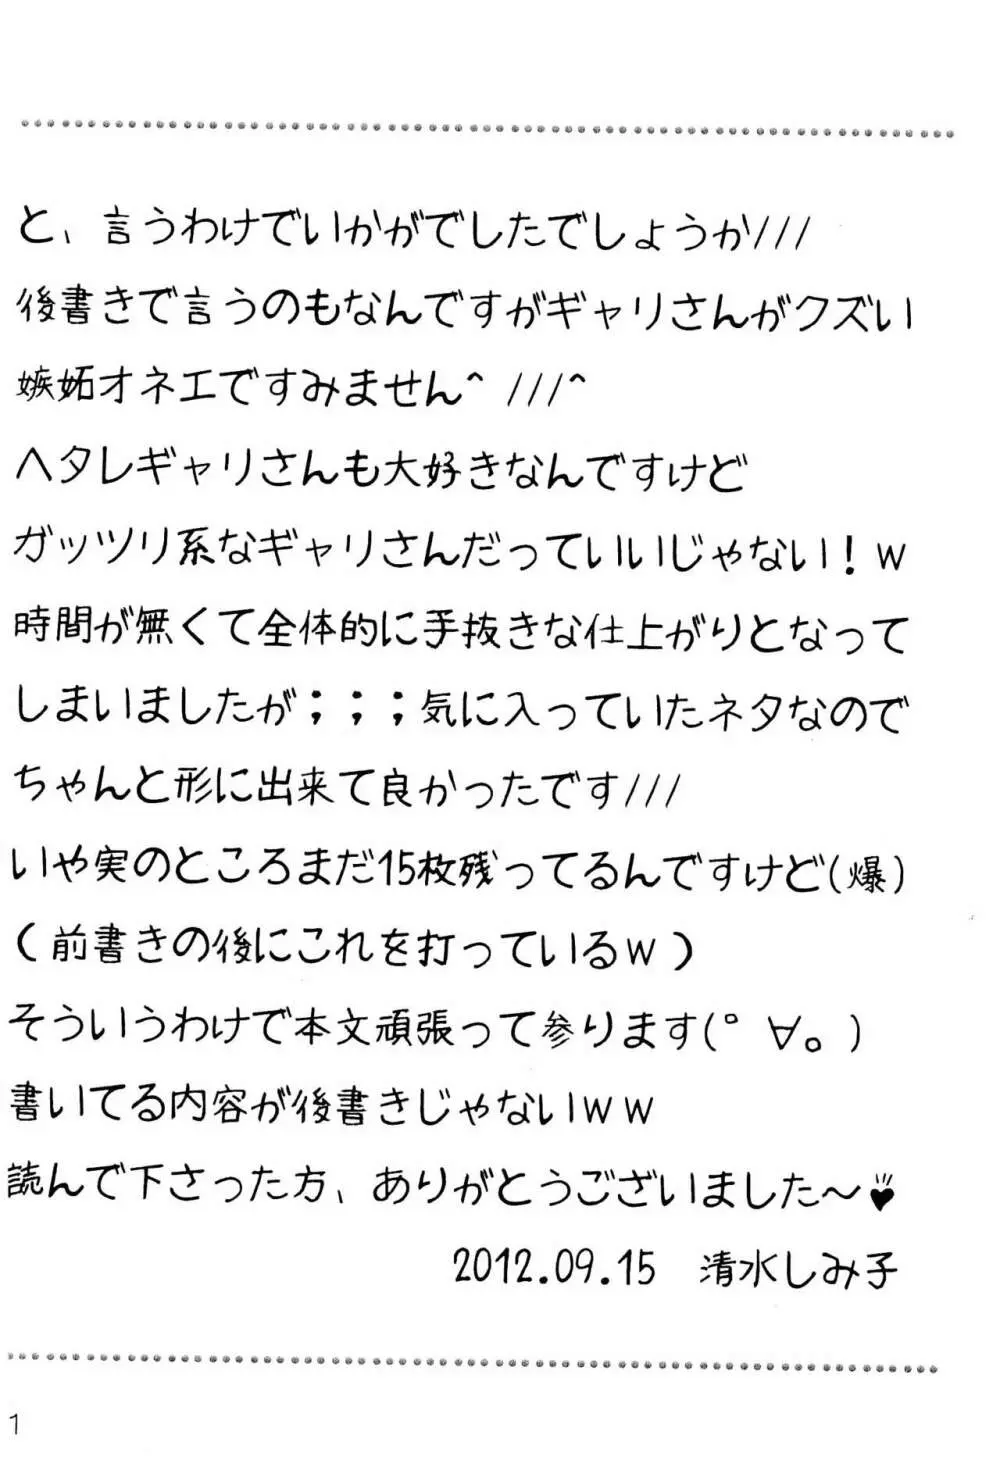 と、言うわけでいかがでしたでしょうか///
後書きで言うのもなんですがギャリさんがクズい
嫉妬オネエですみません^ ///^
ヘタレギャリさんも大好きなんですけど
ガッツリ系なギャリさんだっていいじゃない！w
時間が無くて全体的に手抜きな仕上がりとなって
しまいましたが；；；気に入っていたネタなので
ちゃんと形に出来て良かったです///
いや実のところまだ15枚残ってるんですけど(爆)
(前書きの後にこれを打っているw)
そういうわけで本文頑張って参ります(゜∀。)
書いてる内容が後書きじゃないww
読んで下さった方、ありがとうございました〜♥
2012.09.15 清水しみ子
1